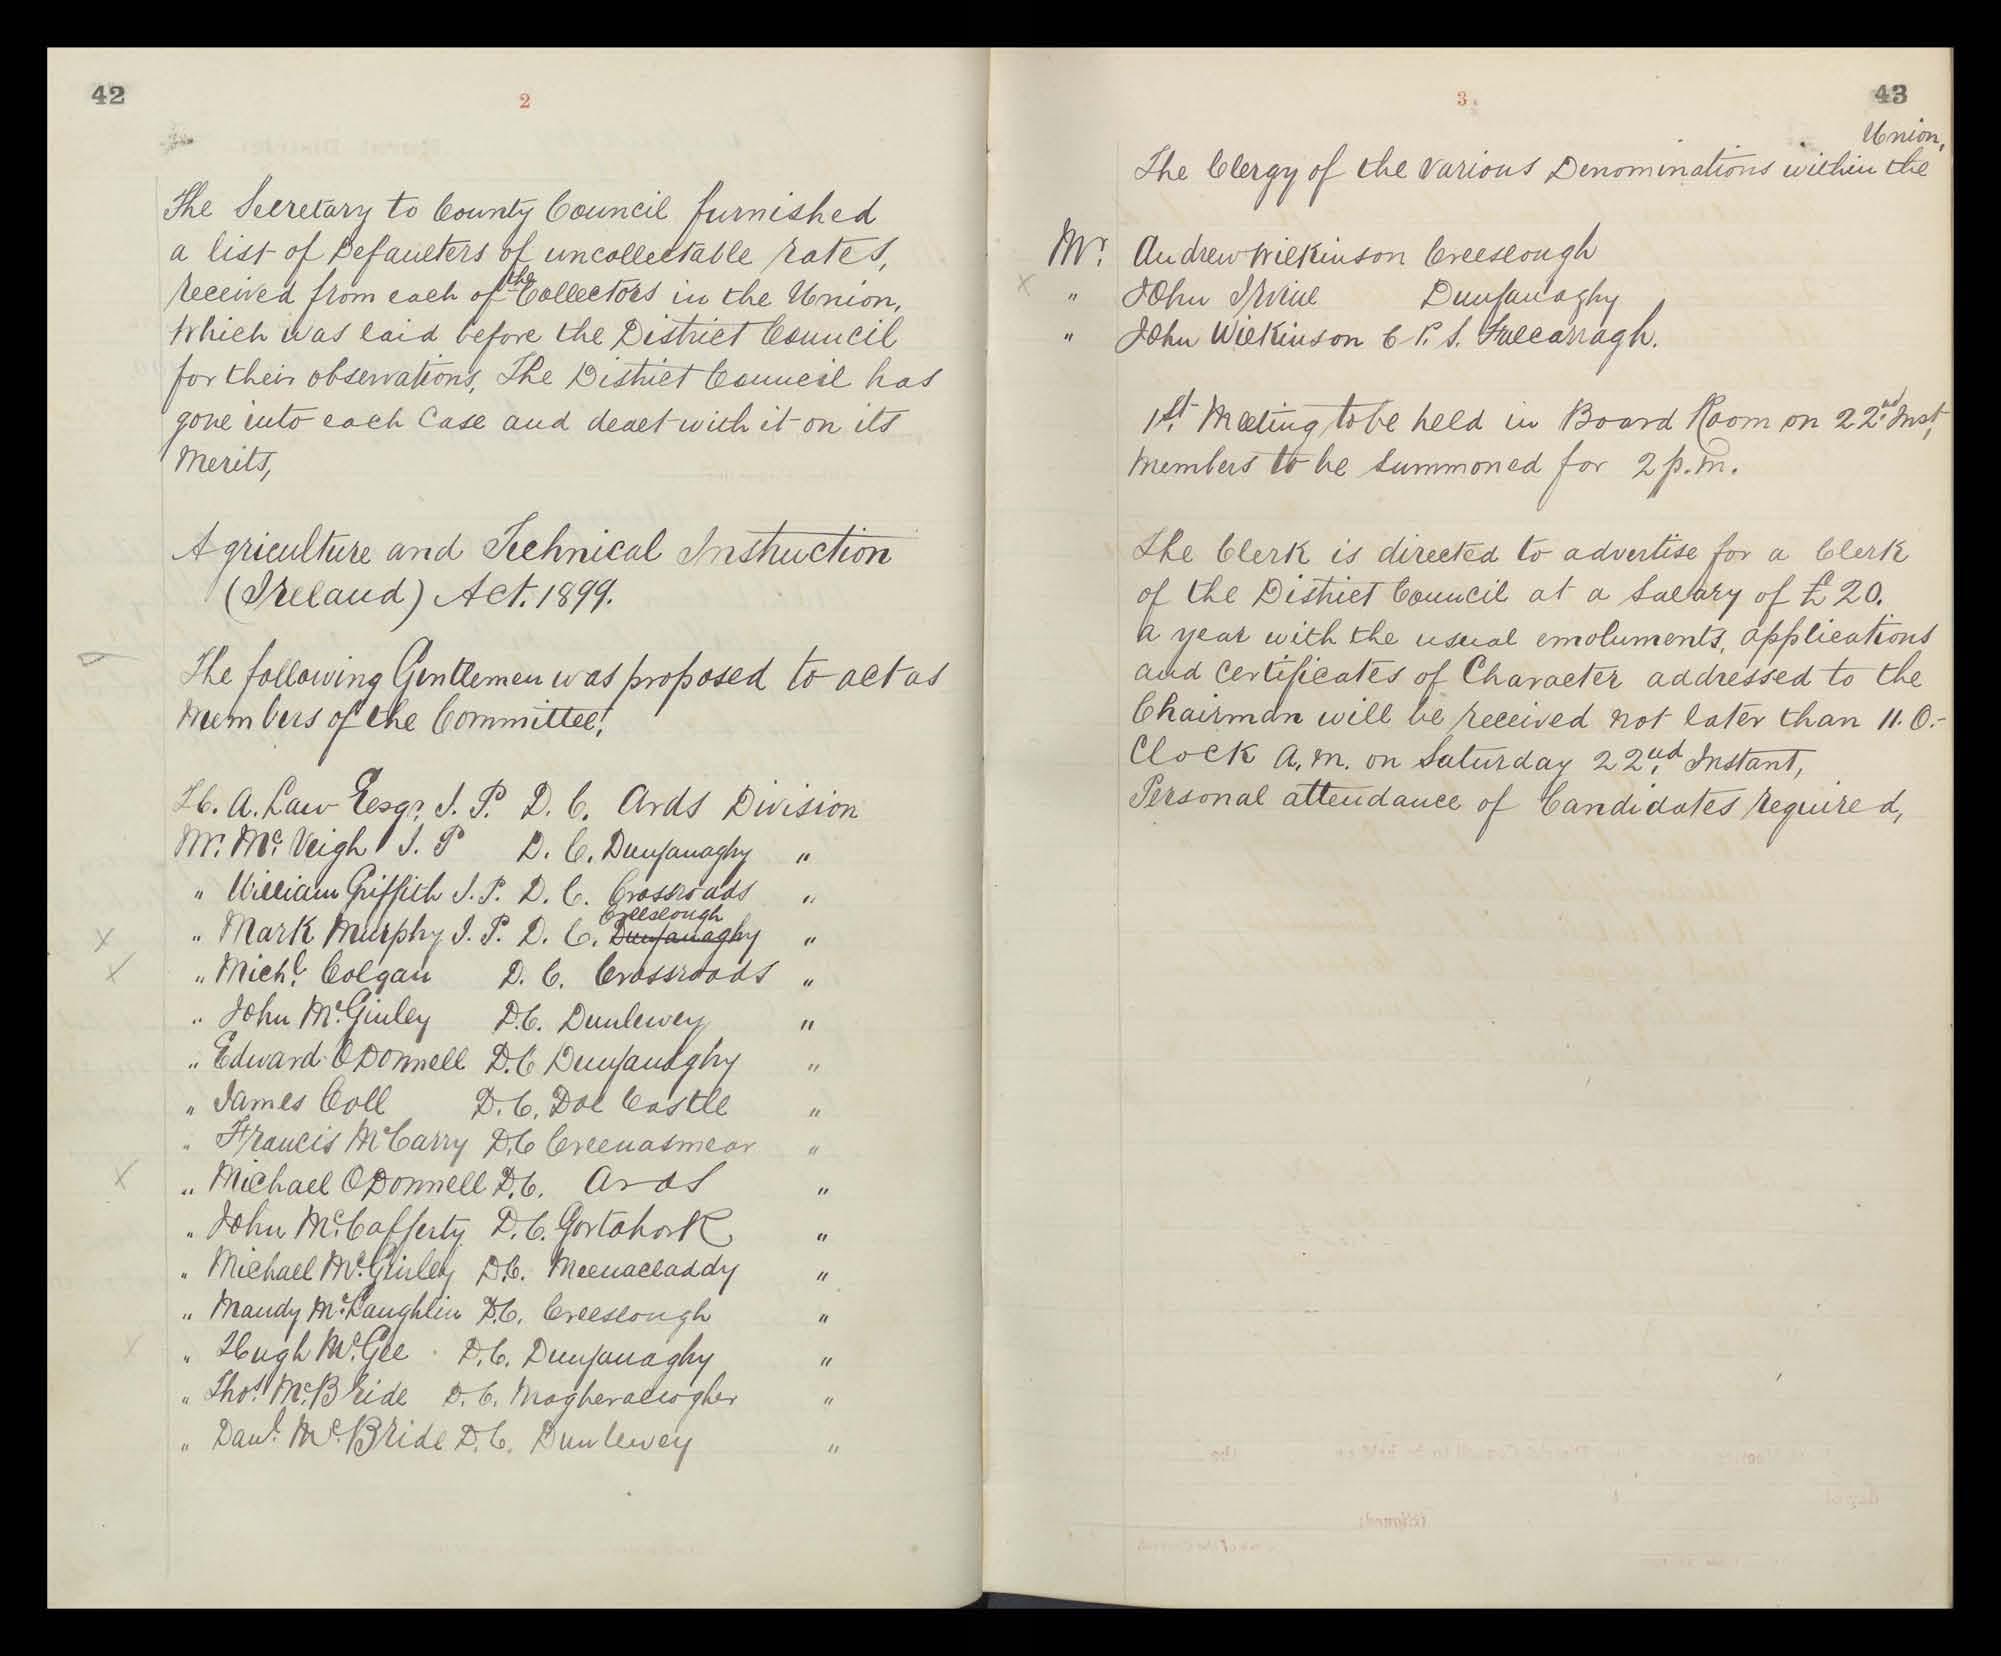 42
2
The Secretary to County Council furnished
a list of Defaulters of uncollectable rates,
received from each of the Collectors in the Union,
Which was laid before the District Council
for their observations, The District Council has
gone into each Case and dealt with it on its
Merits,
Agriculture and Technical Instruction
(Ireland) Act. 1899.
The following Gentlemen was proposed to act as
Members of the Committee!
H. A. Law Eesqr. J. P. D. C. Ards Division
Mr. Mc. Veigh J. P D. C. Dunfanaghy "
" William Griffith J. P. D. C. Crossroads "
" Mark Murphy J. P. D. C. Dunfanaghy Creeslough "
" Michl. Colgan D. C. Crossroads "
" John Mc. Ginley D.C. Dunlewey "
" Edward O'Donnell D.C Dunfanaghy "
" James Coll D.C. Doe Castle "
" Francis McCarry D.C Creenasmear "
" Michael O'Donnell D.C. Ards "
" John Mc.Cafferty D.C. Gortahork "
" Michael Mc.Ginley D.C. Meenacladdy "
" Mandy Mc.Laughlin D.C. Creeslough "
" Hugh Mc.Gee D.C. Dunfanaghy "
" Thos. Mc.Bride D.C. Magheraclogher "
" Danl. Mc.Bride D.C. Dunlewey "
3
43
Union,
The Clergy of the various Denominations within the
Mr. Andrew Wilkinson Creeslough
" John Irvine Dunfanaghy
" John Wilkinson C P. S. Falcarragh.
1st. Meeting to be held in Board Room on 22nd. Inst,
Members to be Summoned for 2 p.m.
The Clerk is directed to advertise for a Clerk
of the District Council at a Salary of £20.
a year with the usual emoluments, applications
and Certificates of Character addressed to the
Chairman will be received not later than 11. O.-
Clock A.M. on Saturday 22nd. Instant,
Personal attendance of Candidates required,